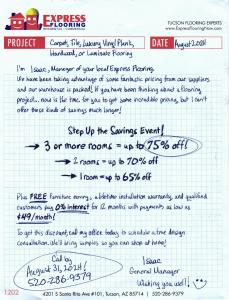 EXPRESS
FLOORING
RESIDENTIAL • COMMERCIAL
TUCSON FLOORING EXPERTS
www.ExpressFlooringNow.com
PROJECT
Carpet, Tile, Luxury Vinyl Plank,
Hardwood, or Laminate Flooring
DATE
August 2021
I'm Isaac, Manager of your local Express Flooring.
We have been taking advantage of some fantastic pricing from our suppliers
and our warehouse is packed! If you have been thinking about a flooring
project... now is the time for you to get some incredible pricing, but I can't
offer these kinds of savings much longer!
Step Up the Savings Event!
→ 3 or more rooms = up to 75% off!
→ 2 rooms = up to 70% off
→ 1 room = up to 65% off
Plus FREE furniture moving, a lifetime installation warranty, and qualified
customers pay 0% interest for 12 months with payments as low as
$49/month!
To get this discount, call my office today to schedule a free design
consultation. We'll bring samples so you can shop at home!
Call by
August 31, 2021!
520-286-9379
Isaac
General Manager
Making you well!
1202
4201 S Santa Rita Ave #101, Tucson, AZ 85714 | 520-286-9379